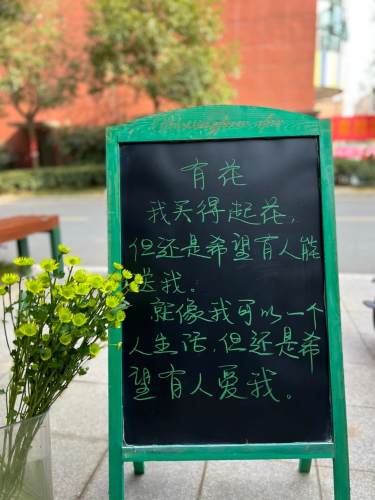 有花
我买得起花，
但还是希望有人能
送我。
就像我可以一个
人生活，但还是希
望有人爱我。